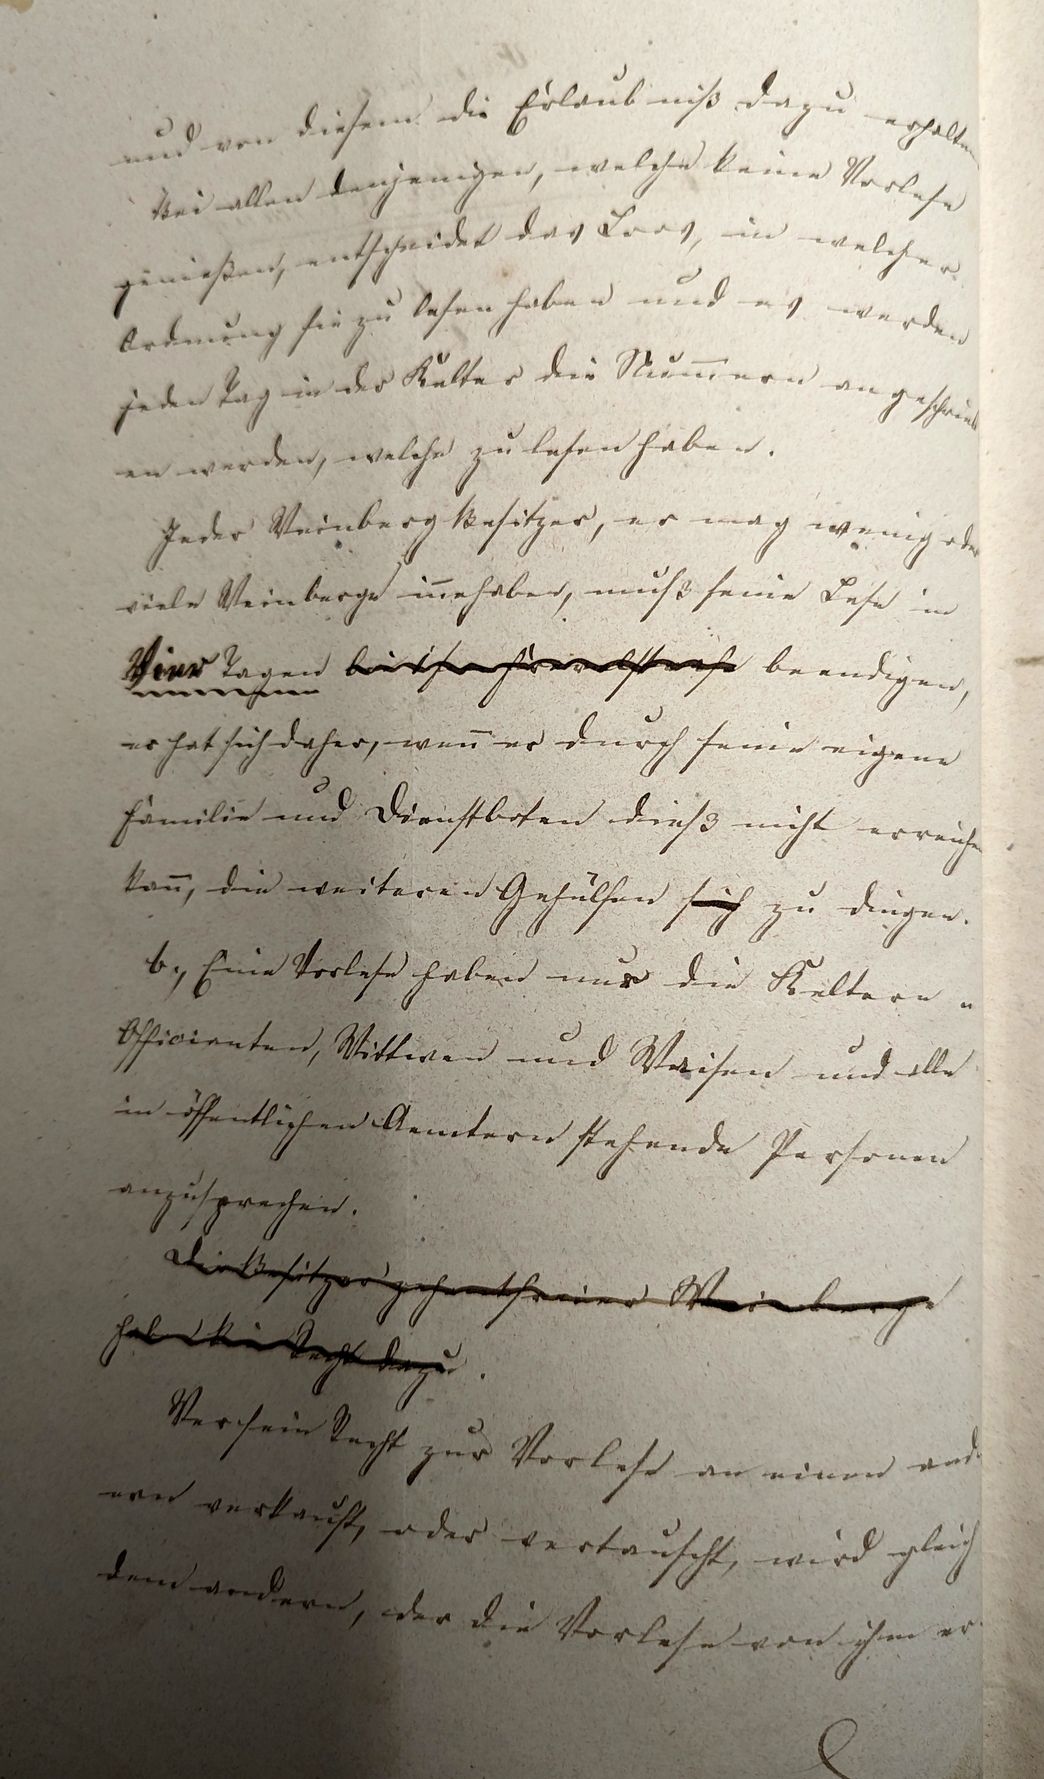 und von diesem die Erlaubniß dazu erhalten
Bei allen denjenigen, welche keine Vorlese
genießen, entscheidet das Loos, in welcher
Ordnung sie zu lesen haben und es werden
jeden Tag in der Kelter die Num̅ern angeschrieb
en werden, welche zu lesen haben.
Jeder Weinberg Besitzer, er mag wenig oder
viele Weinberge in̅ehaben, muß seine Lese in
Vier Tagen beendigen,
er hat sich daher, wen̅ er durch seine eigene
Familie und Dienstboten dieß nicht erreichen
kan̅, die weiteren Gehülfen sich zu dingen.
b., Eine Vorlese haben nur die Keltern
Officianten, Wittwen und Waisen und alle
in öffentlichen Aemtern stehende Personen
anzusprechen.
Die Besitzer zehentfreier Weinberge
haben kein Recht dazu.
Wer sein Recht zur Vorlese an einen and
ern verkauft, oder vertauscht, wird gleich
dem andern, der die Vorlese von ihm er